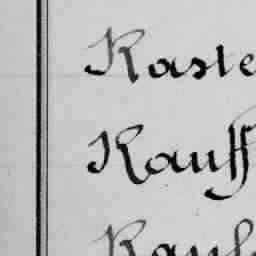 Kaste
Kauff